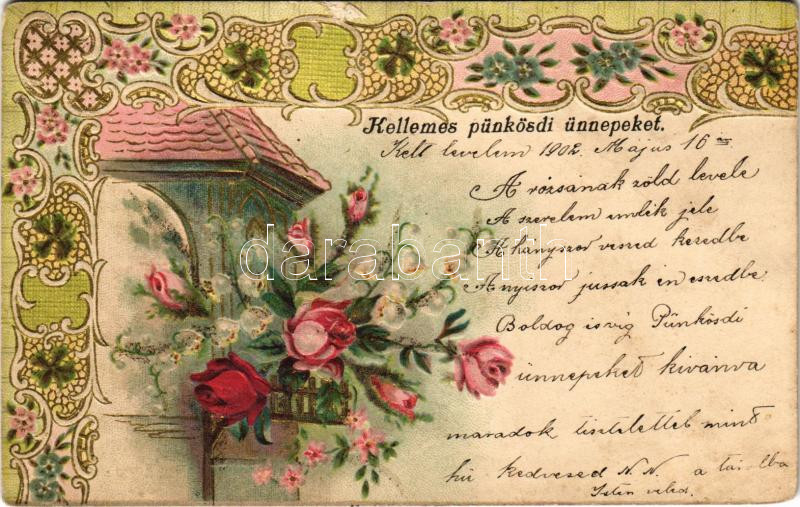 Kellemes pünkösdi ünnepeket.
Kelt levelem 1902. Május 16
A rózsának zöld levele
A szerelem emlék jele
A hányszor veszed kezedbe
Anyiszor jussak én eszedbe.
Boldog is víg Pünkösdi
ünnepeket kivánva
maradok tisztelettel mint
hű kedvesed N. N. a távolba
Isten veled.
darabanth